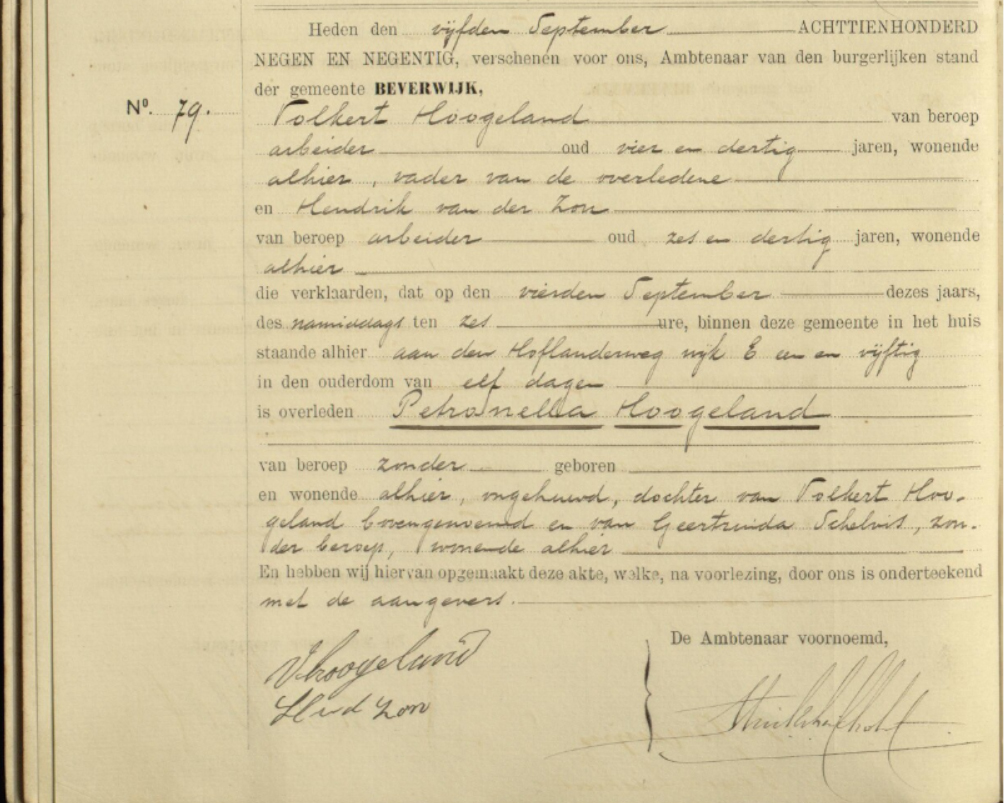 Heden den vijfden September ACHTTIENHONDERD
NEGEN EN NEGENTIG, verschenen voor ons, Ambtenaar van den burgerlijken stand
der gemeente BEVERWIJK,
No. 79. Volkert Hoogeland van beroep
arbeider oud vier en dertig jaren, wonende
alhier, vader van de overledene
en Hendrik van der Zon
van beroep arbeider oud zes en dertig jaren, wonende
alhier
die verklaarden, dat op den vierden September dezes jaars,
des namiddags ten zes ure, binnen deze gemeente in het huis
staande alhier aan den Hoflanderweg wyk E een en vijftig
in den ouderdom van elf dagen
is overleden Petronella Hoogeland
van beroep zonder geboren
en wonende alhier, ongehuwd, dochter van Volkert Hoo-
geland bovengenoemd en van Geertruida Schelvis, zon-
der beroep, wonende alhier
En hebben wij hiervan opgemaakt deze akte, welke, na voorlezing, door ons is onderteekend
met de aangevers.
De Ambtenaar voornoemd,
V Hoogeland
H v d Zon